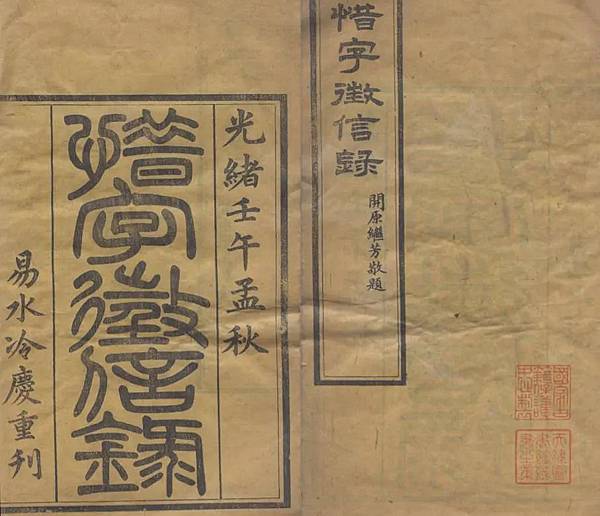 惜字徵信錄
開原繼芳敬題
光緒壬午孟秋
惜字徵信錄
易水冷慶重刊